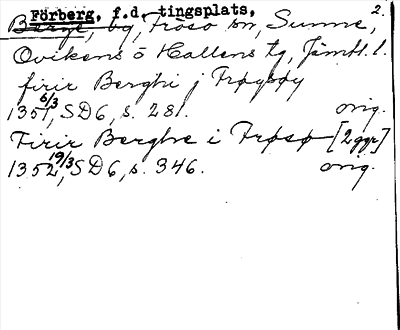 Förberg, f.d. tingsplats, 2.
Berge, by, Frösö sn, Sunne,
Ovikens o Hallens tg, Jämtl. l.
firir Berghi j Frøysøy
1351 6/3, SD6, s. 281. orig.
Firir Berghe i Frøsø [2 ggr]
1352 19/3, SD6, s. 346. orig.